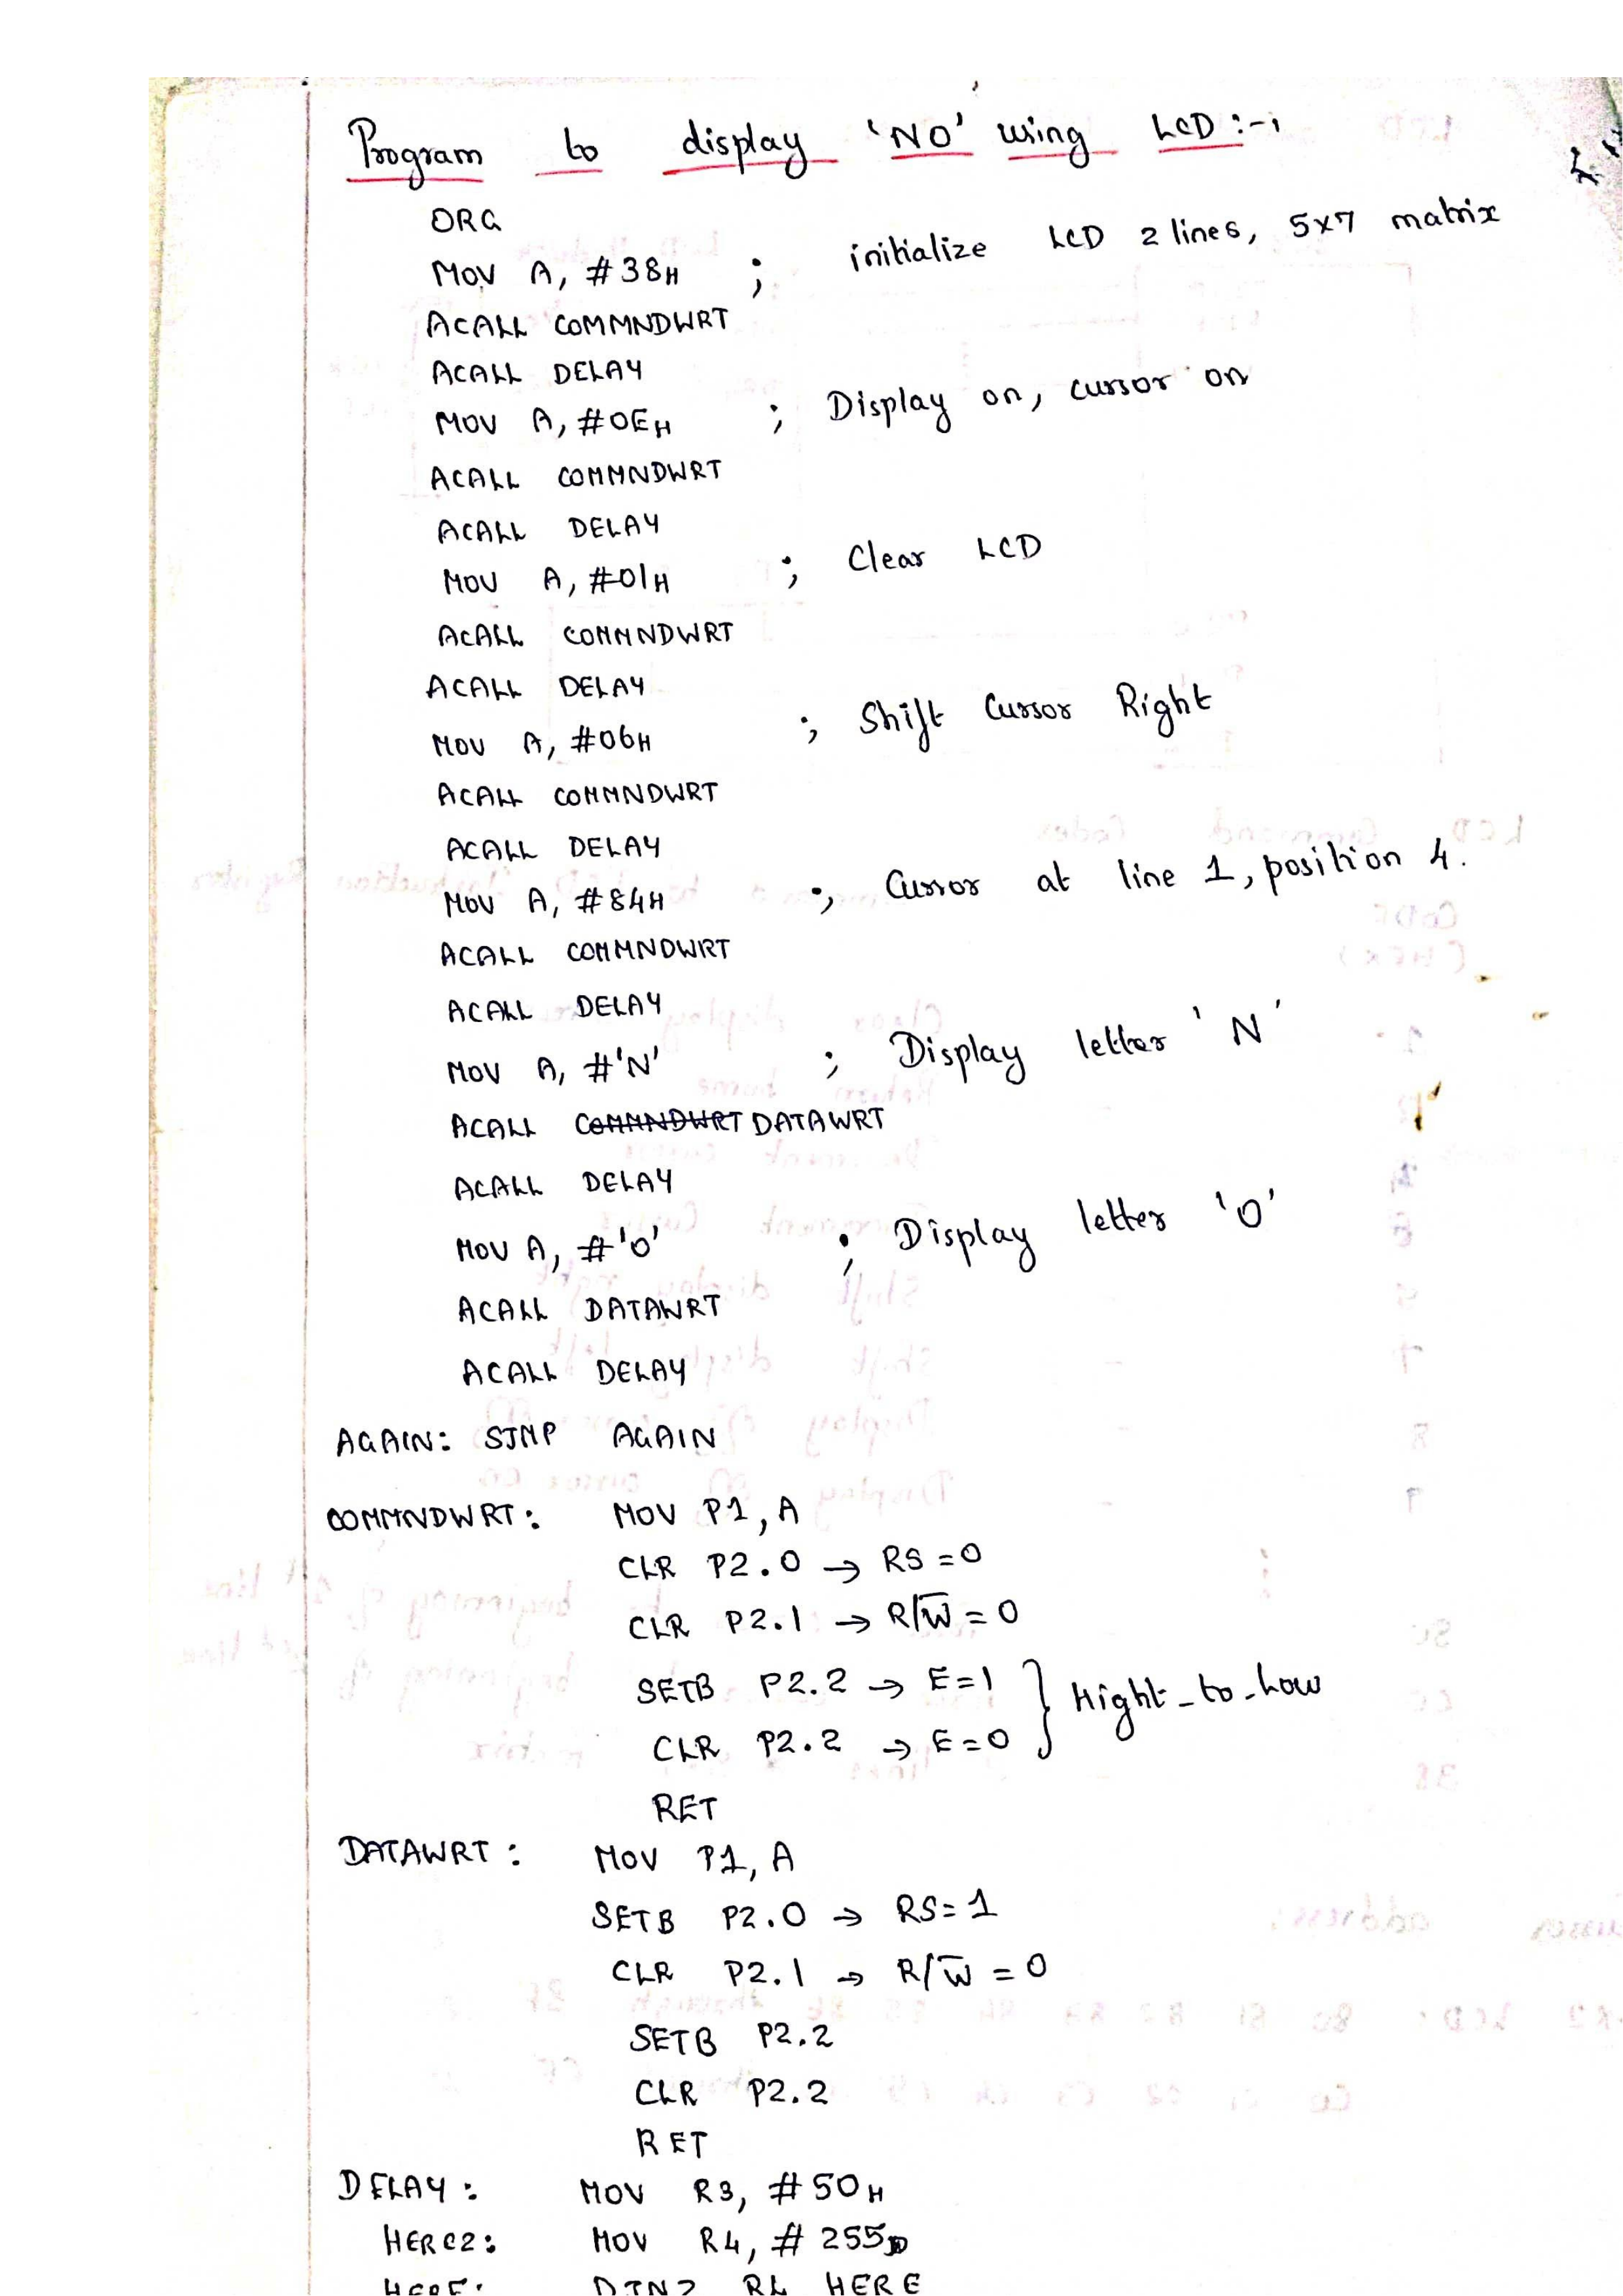 Program to display 'NO' using LCD :-
ORG
MOV A, #38H ; initialize LCD 2 lines, 5x7 matrix
ACALL COMMNDWRT
ACALL DELAY
MOV A, #0EH ; Display on, cursor on
ACALL COMMNDWRT
ACALL DELAY
MOV A, #01H ; Clear LCD
ACALL COMMNDWRT
ACALL DELAY
MOV A, #06H ; Shift Cursor Right
ACALL COMMNDWRT
ACALL DELAY
MOV A, #84H ; Cursor at line 1, position 4.
ACALL COMMNDWRT
ACALL DELAY
MOV A, #'N' ; Display letter 'N'
ACALL COMMNDWRT DATAWRT
ACALL DELAY
MOV A, #'O' ; Display letter 'O'
ACALL DATAWRT
ACALL DELAY
AGAIN: SJMP AGAIN
COMMNDWRT: MOV P1, A
CLR P2.0 → RS = 0
CLR P2.1 → R/W̅ = 0
SETB P2.2 → E=1 } Hight-to-Low
CLR P2.2 → E=0
RET
DATAWRT: MOV P1, A
SETB P2.0 → RS=1
CLR P2.1 → R/W̅ = 0
SETB P2.2
CLR P2.2
RET
DELAY: MOV R3, #50H
HERE2: MOV R4, #255D
HERE: DJNZ R4 HERE